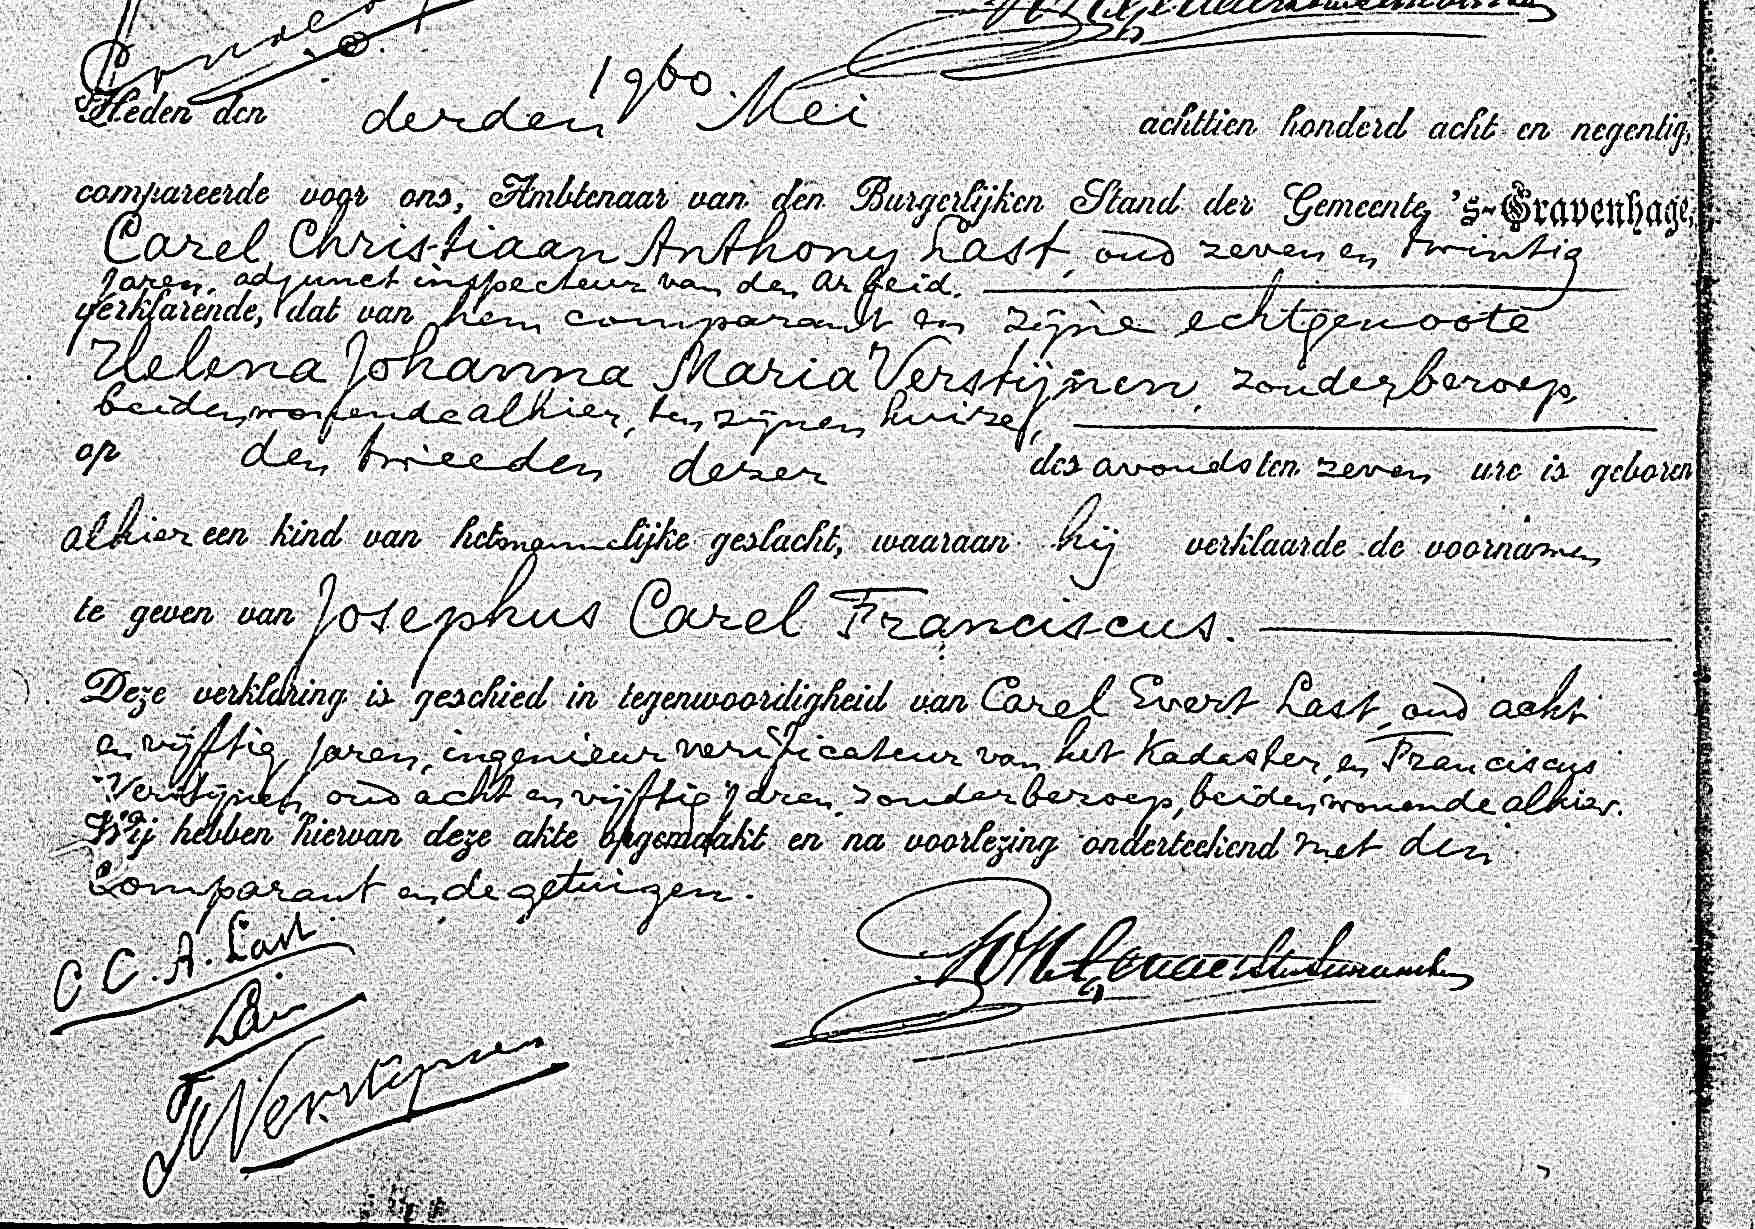 1960.
Heden den derden Mei achttien honderd acht en negentig,
compareerde voor ons, Ambtenaar van den Burgerlijken Stand der Gemeente 's-Gravenhage,
Carel Christiaan Anthony Last, oud zeven en twintig
jaren, adjunct inspecteur van den arbeid.
verklarende, dat van hem comparant en zijne echtgenoote
Helena Johanna Maria Verstijnen, zonder beroep,
beiden wonende alhier, ten zijnen huize,
op den tweeden dezer des avonds ten zeven ure is geboren
alhier een kind van het mannelijke geslacht, waaraan hij verklaarde de voornamen
te geven van Josephus Carel Franciscus.
Deze verklaring is geschied in tegenwoordigheid van Carel Evert Last, oud acht
en vijftig jaren, ingenieur verificateur van het Kadaster, en Franciscus
Verstijnen, oud acht en vijftig jaren, zonder beroep, beiden wonende alhier.
Wij hebben hiervan deze akte opgemaakt en na voorlezing onderteekend met den
Comparant en de getuigen.
C C. A. Last
Verstijnen